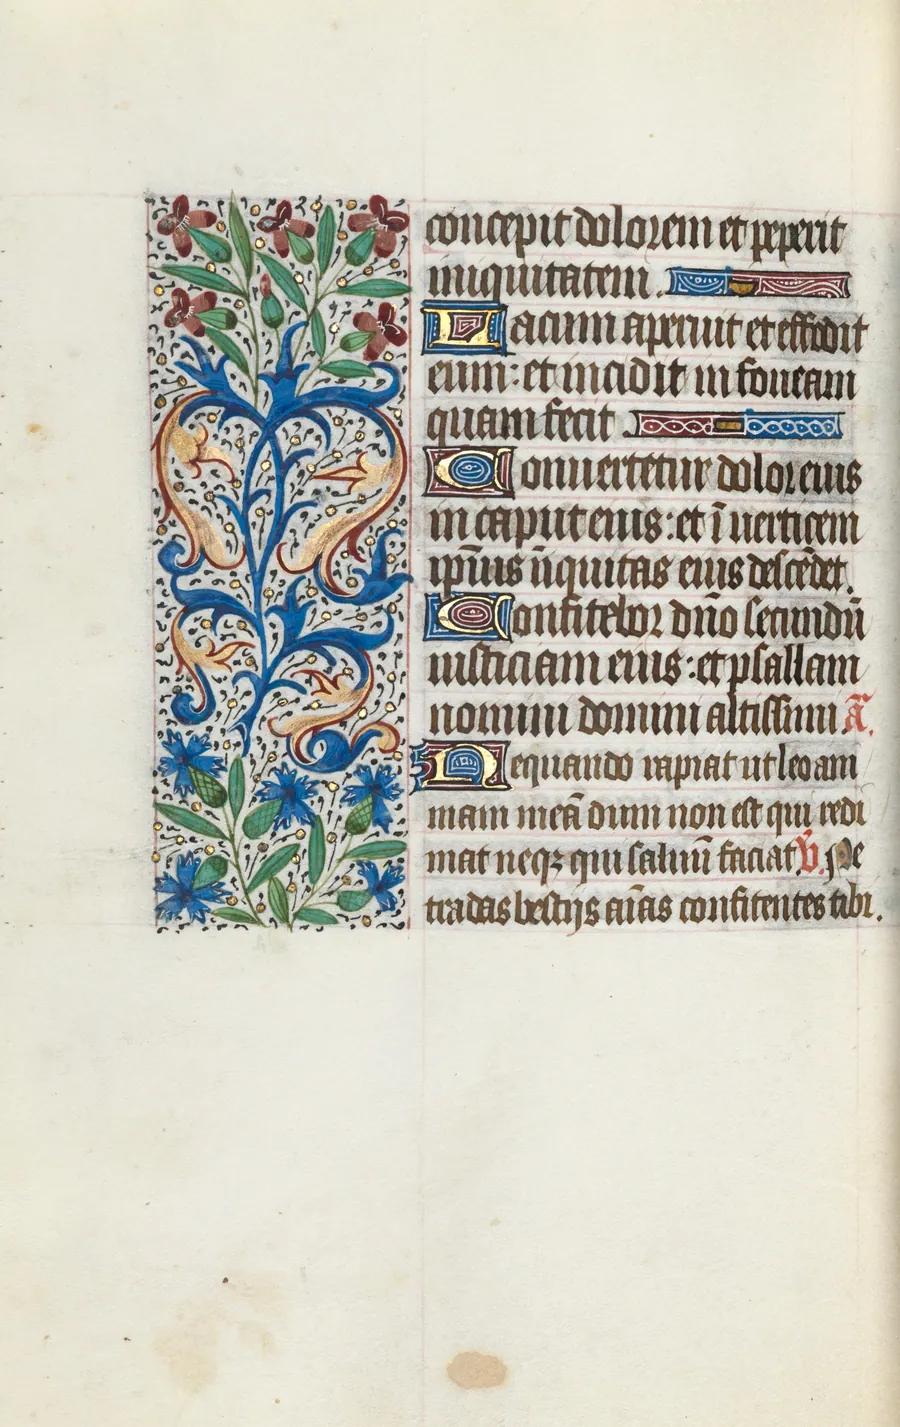 concepit dolorem et peperit
iniquitatem.
Lacum aperuit et effodit
eum: et incidit in foueam
quam fecit
Conuertetur dolor eius
in caput eius: et ī uerticem
ip̄ius īiquitas eius descēdet.
Confitebor dn̄o secundū
iusticiam eius: et psallam
nomini domini altissimi ā.
Nequando rapiat ut leo am
mam meā dum non est qui redi
mat neqz qui saluū faciat V̄. Ne
tradas bestijs aīas confitentes tibi.